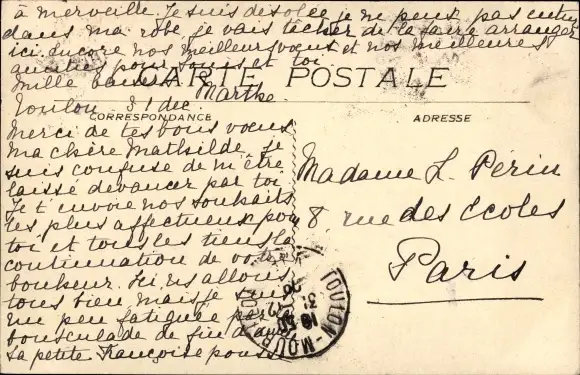 à merveille. Je suis désolée, je ne peux pas entrer
dans ma robe je vais tâcher de la faire arranger
ici. Encore nos meilleurs vœux et nos meilleures
amitiés pour vous et toi
CARTE POSTALE
Mille baisers Marthe
Toulon 31 déc.
CORRESPONDANCE
ADRESSE
Merci de tes bons vœux
ma chère Mathilde, je
suis confuse de m'être
laissé devancer par toi
Je t'envoie nos souhaits
les plus affectueux pour
toi et tous les tiens la
continuation de votre
bonheur. Ici, ns allons
tous bien mais je suis
un peu fatiguée par la
bousculade de fin d'année
La petite Françoise pousse
Madame L. Périn
8, rue des Ecoles
Paris
TOULON-MOURILLON
16 50
31
12